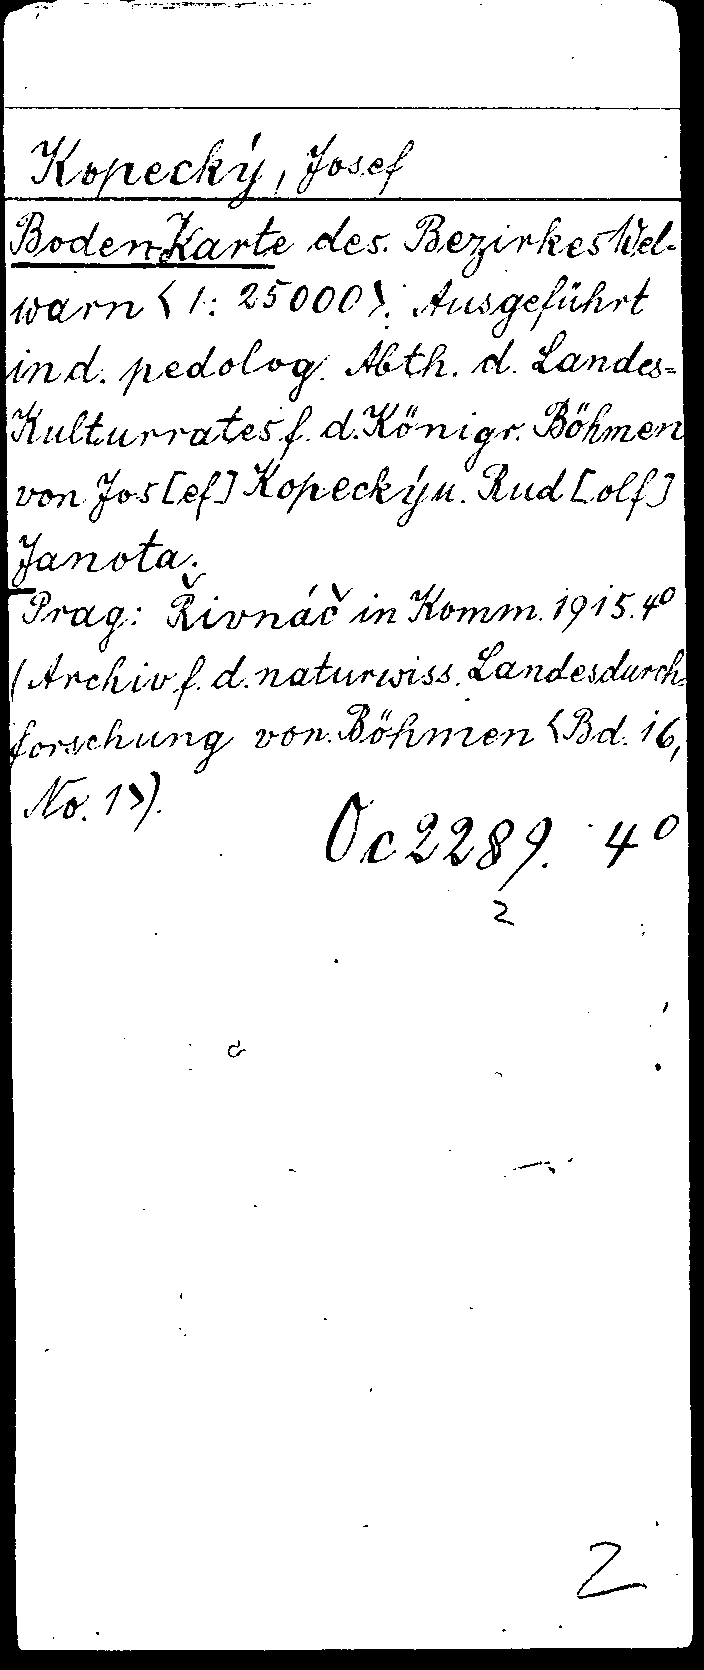 Kopecký, Josef
Boden-Karte des Bezirkes Wel-
warn <1: 25000>. Ausgeführt
in d. pedolog. Abth. d. Landes-
Kulturrates f. d. Königr. Böhmen
von Jos[ef] Kopecký u. Rud[olf]
Janota.
Prag: Řivnáč in Komm. 1915. 4°
(Archiv f. d. naturwiss. Landesdurch-
forschung von Böhmen <Bd. 16,
No. 1>).
Oc 2289. 4°
2
2